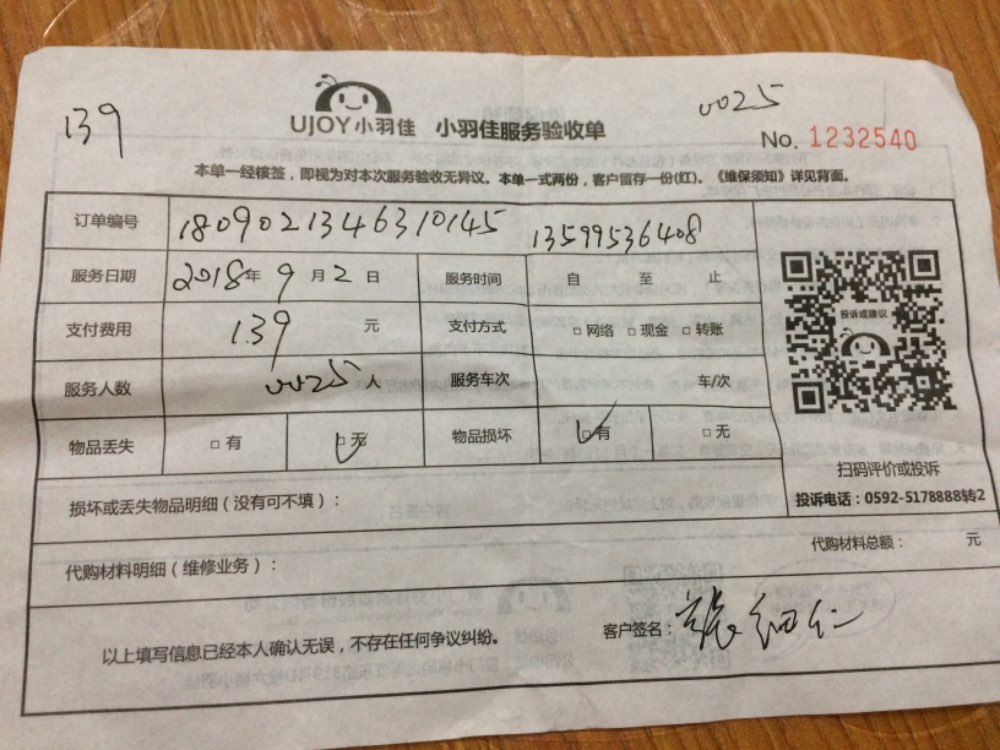 139
0025
UJOY小羽佳 小羽佳服务验收单
No. 1232540
本单一经核签，即视为对本次服务验收无异议。本单一式两份，客户留存一份(红)。《维保须知》详见背面。
订单编号 1809021346310145 13599536408
服务日期 2018年9月2日 服务时间 自 至 止
支付费用 139 元 支付方式 □网络 □现金 □转账
投诉或建议
服务人数 0025人 服务车次 车/次
物品丢失 □有 □无 物品损坏 □有 □无
扫码评价或投诉
投诉电话：0592-5178888转2
损坏或丢失物品明细（没有可不填）：
代购材料明细（维修业务）： 代购材料总额： 元
以上填写信息已经本人确认无误，不存在任何争议纠纷。 客户签名：